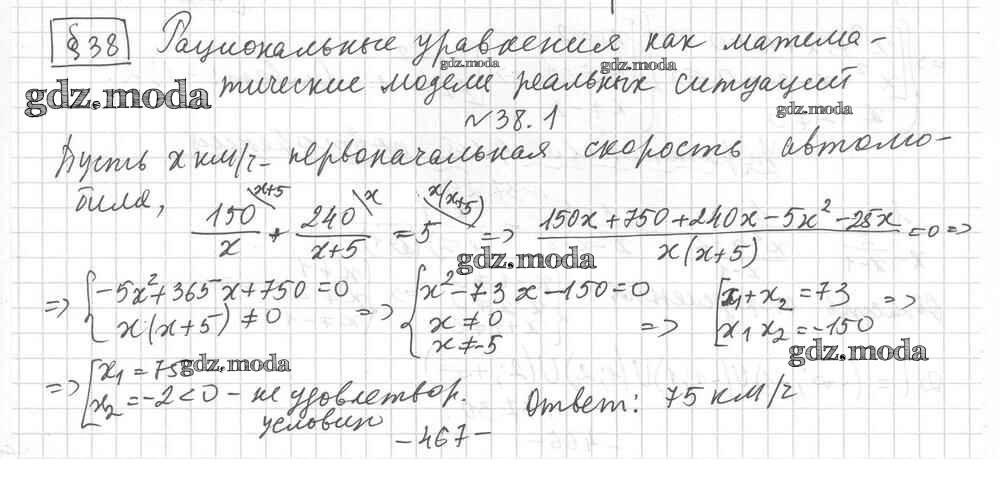 §38 Рациональные уравнения как матема-
тические модели реальных ситуаций
gdz.moda
gdz.moda
gdz.moda
gdz.moda
№38.1
Пусть x км/ч - первоначальная скорость автомо-
биля,
150/x + 240/(x+5) = 5 => (150x+750+240x-5x²-25x)/(x(x+5)) =0 =>
x+5 x x(x+5)
gdz.moda
=> { -5x²+365x+750=0 x(x+5)≠0 => { x²-73x-150=0 x≠0 x≠-5 => [ x₁+x₂=73 x₁x₂=-150 =>
gdz.moda
gdz.moda
=> [ x₁=75 x₂=-2<0 - не удовлетвор. условию
Ответ: 75 км/ч
-467-